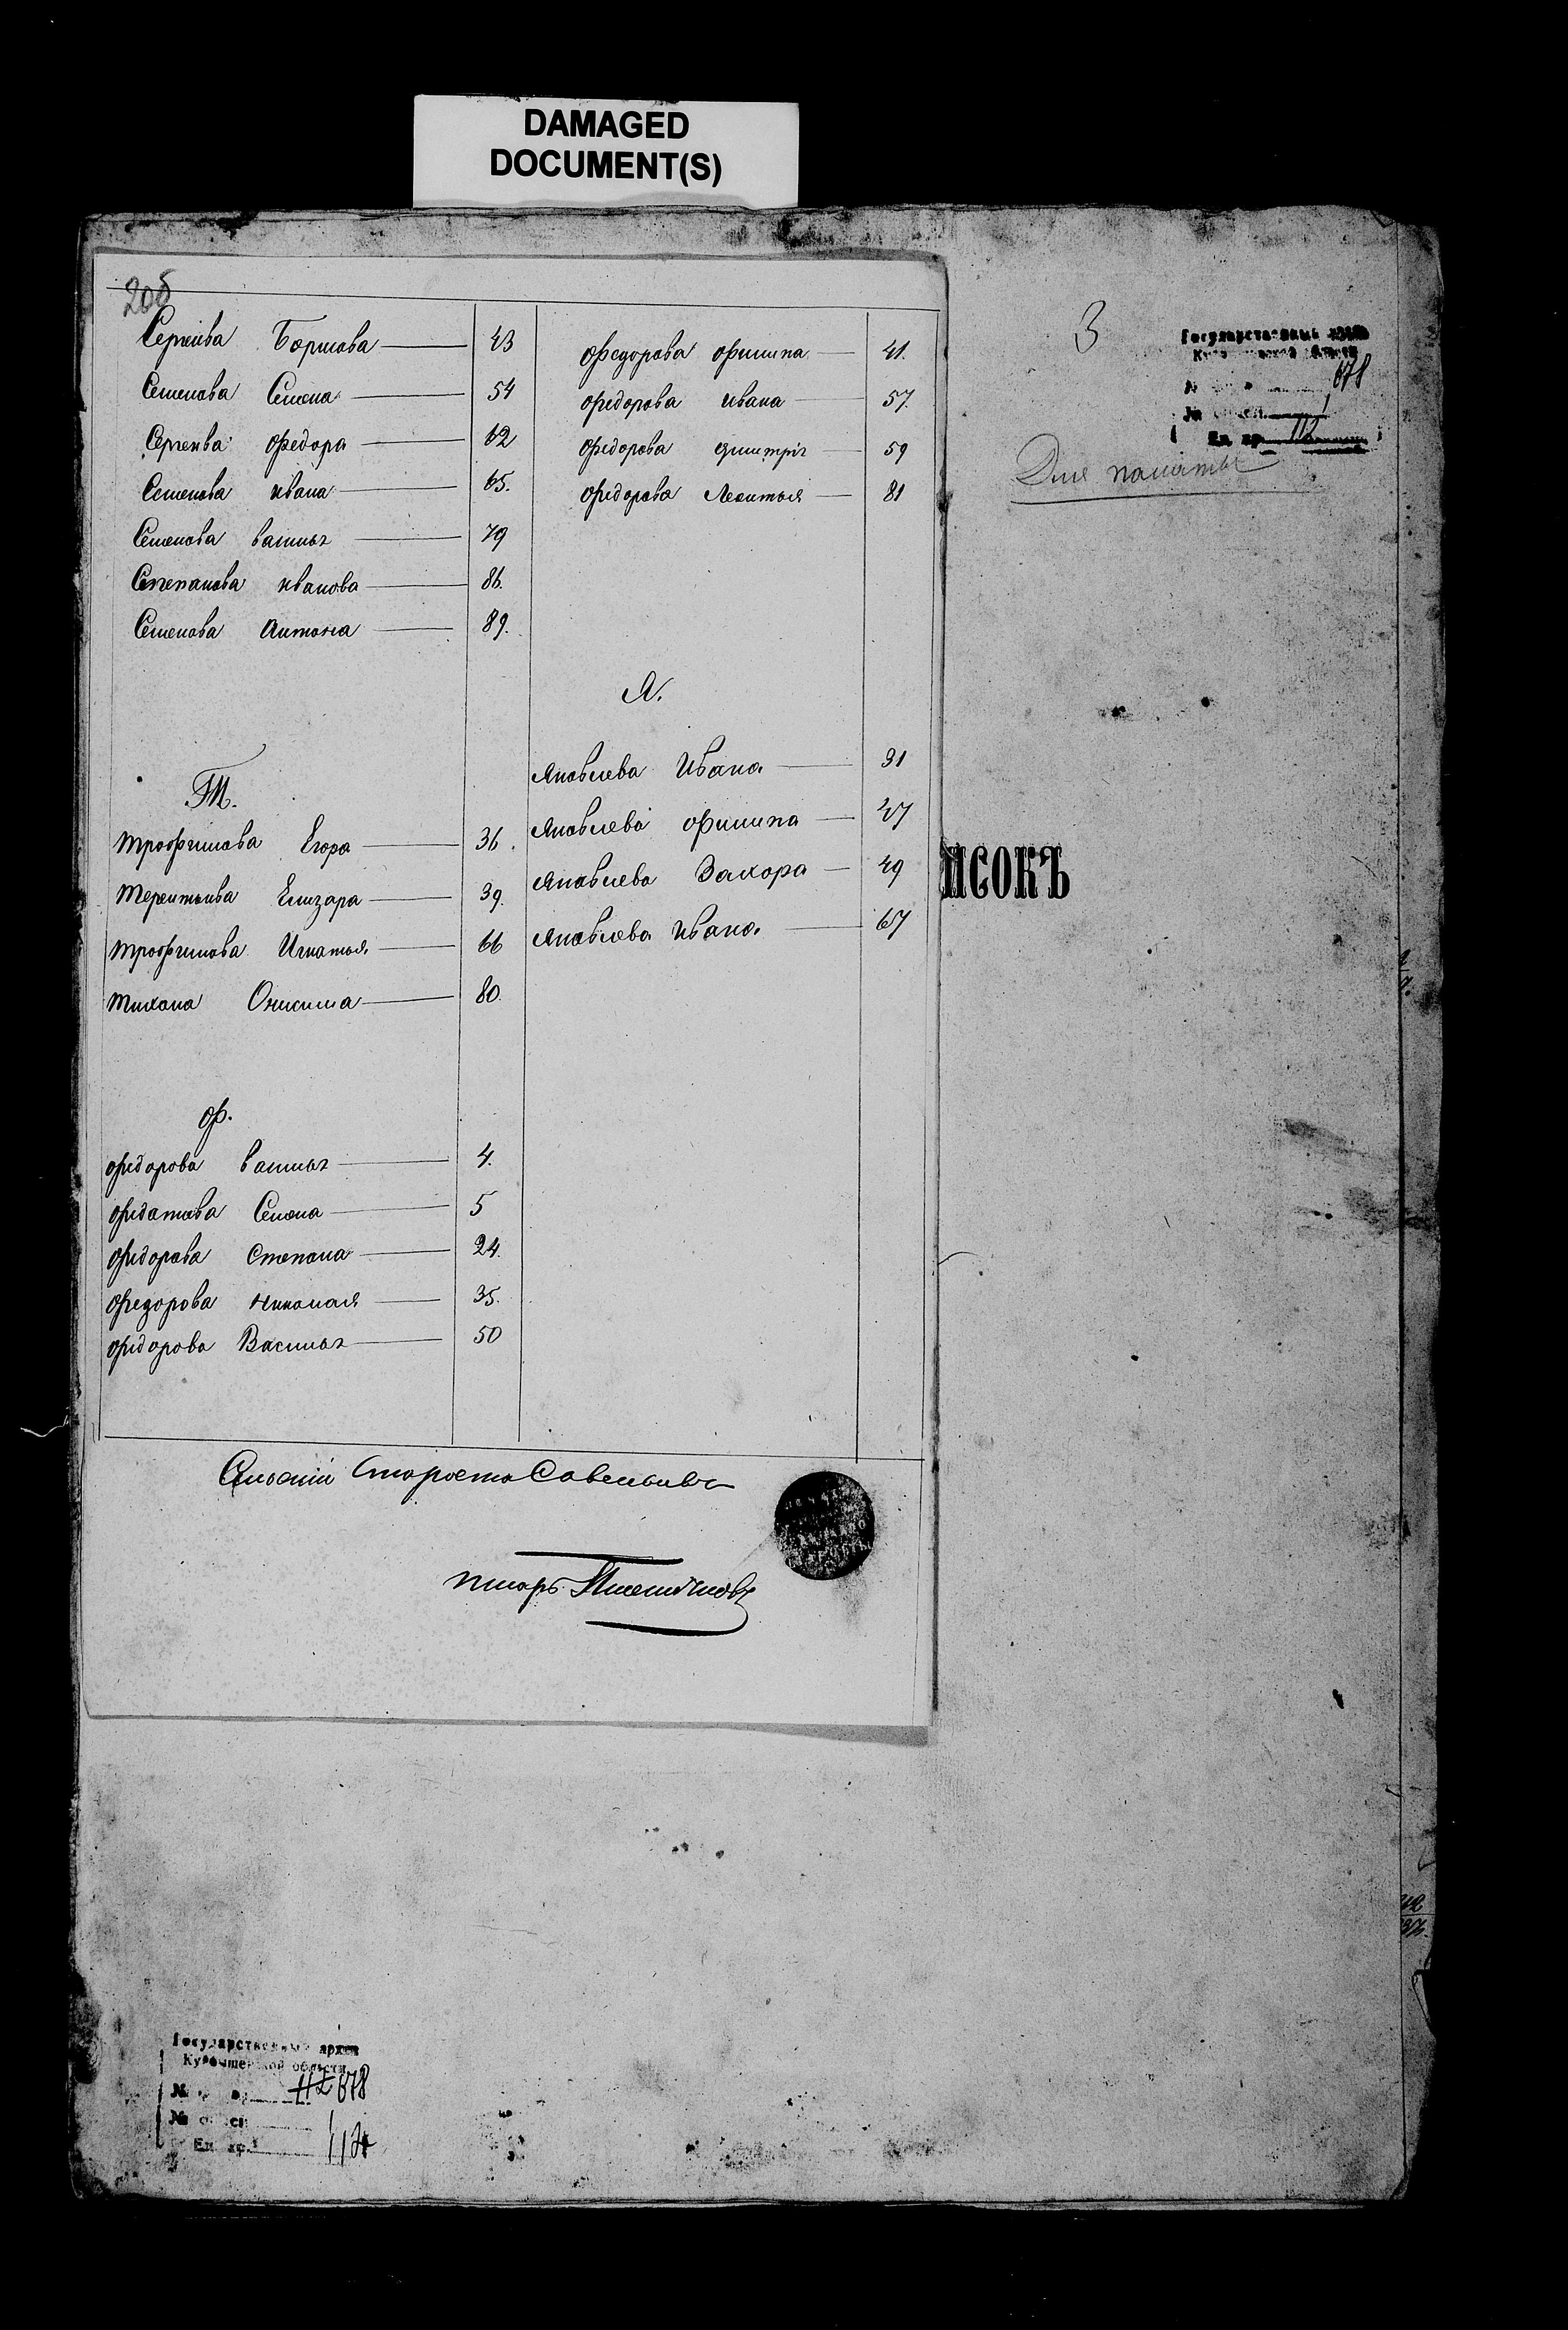 DAMAGED
DOCUMENT(S)
205
Сергѣева Борисова 43
Семенова Семена 54
Сергѣева Федора 62
Семенова Ивана 65.
Семенова Василья 79
Степанова Иванова 86.
Семенова Антона 89.
Т.
Трофимова Егора 36.
Терентьева Елизара 39.
Трофимова Игнатья 66
Тихона Онисима 80.
Ф.
Федорова Василья 4.
Федотова Семена 5
Федорова Степана 24.
Федорова Николая 35.
Федорова Василья 50
Федорова Филипа 41.
Федорова Ивана 57.
Федорова Дмитрія 59
Федорова Леонтья 81
Я.
Яковлева Ивана 31
Яковлева Филипа 47
Яковлева Захора 49
Яковлева Ивана 67
Сельскій Староста Савельевъ
писарь
3
Государственный архив
Куйбышевской области
678
1
112
Для палаты
ИСОКЪ
Государственный архив
Куйбышевской области
112 678
№ описи
Ед. хр.